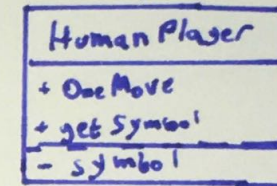 Human Player
+ One Move
+ get Symbol
- symbol